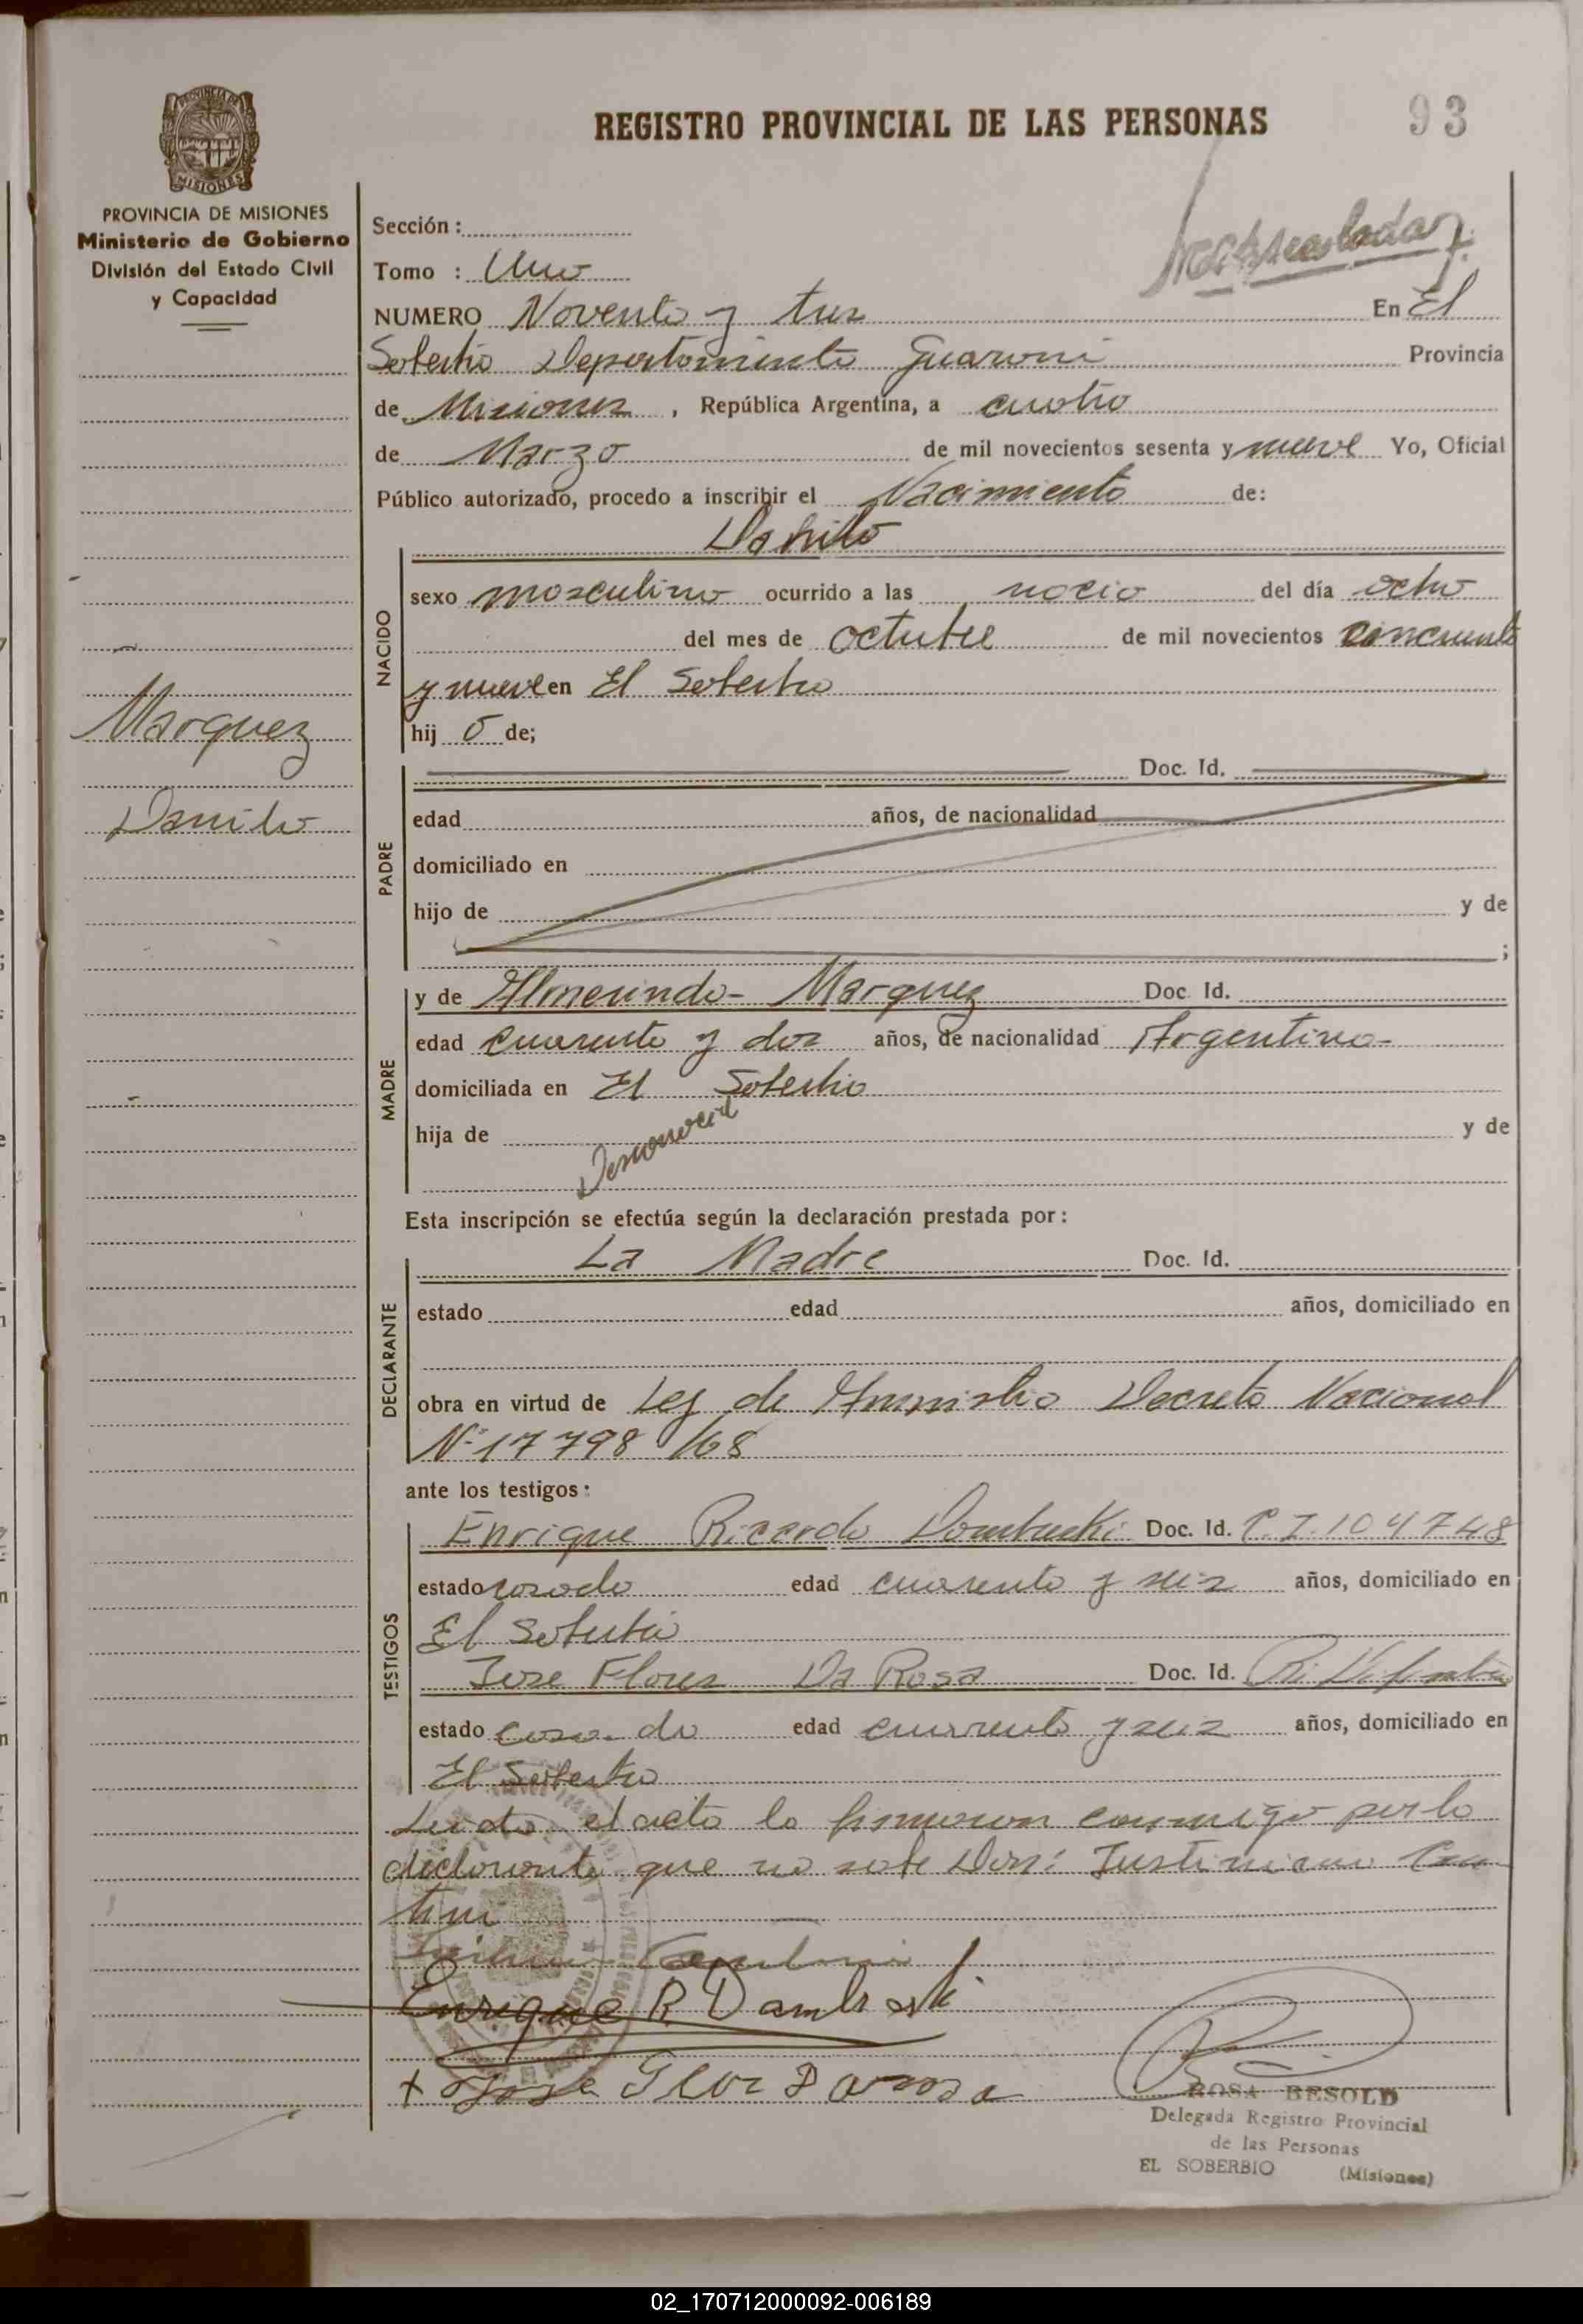 REGISTRO PROVINCIAL DE LAS PERSONAS
93
PROVINCIA DE MISIONES
PROVINCIA DE MISIONES
Ministerio de Gobierno
División del Estado Civil
y Capacidad
Sección :
Tomo : Uno
NUMERO Noventa y tres En El
Soberbio Departamento Guarani Provincia
de Misiones , República Argentina, a cuatro
de Marzo de mil novecientos sesenta y nueve Yo, Oficial
Público autorizado, procedo a inscribir el Nacimiento de:
Danilo
NACIDO
sexo masculino ocurrido a las del día ocho
del mes de octubre de mil novecientos cincuenta
y nueve en El Soberbio
hij o de;
Marquez
Danilo
PADRE
Doc. Id.
edad años, de nacionalidad
domiciliado en
hijo de y de
;
MADRE
y de Almerinda Marquez Doc. Id.
edad cuarenta y dos años, de nacionalidad Argentina
domiciliada en El Soberbio
hija de y de
Desconoce
Esta inscripción se efectúa según la declaración prestada por :
DECLARANTE
La Madre Doc. Id.
estado edad años, domiciliado en
obra en virtud de Ley de Amnistia Decreto Nacional
Nº 17798/68
ante los testigos :
TESTIGOS
Enrique Ricardo Dombuski Doc. Id. C.I. 104748
estado casado edad cuarenta y seis años, domiciliado en
El Soberbio
Jose Flores Da Rosa Doc. Id.
estado casado edad cuarenta y seis años, domiciliado en
El Soberbio
Leida el acta la firmaron conmigo por la
declarante que no sabe Don: Justiniano
Enrique R. Dambroski
+ Jose Flor Darosa
ROSA BESOLD
Delegada Registro Provincial
de las Personas
EL SOBERBIO (Misiones)
02_170712000092-006189